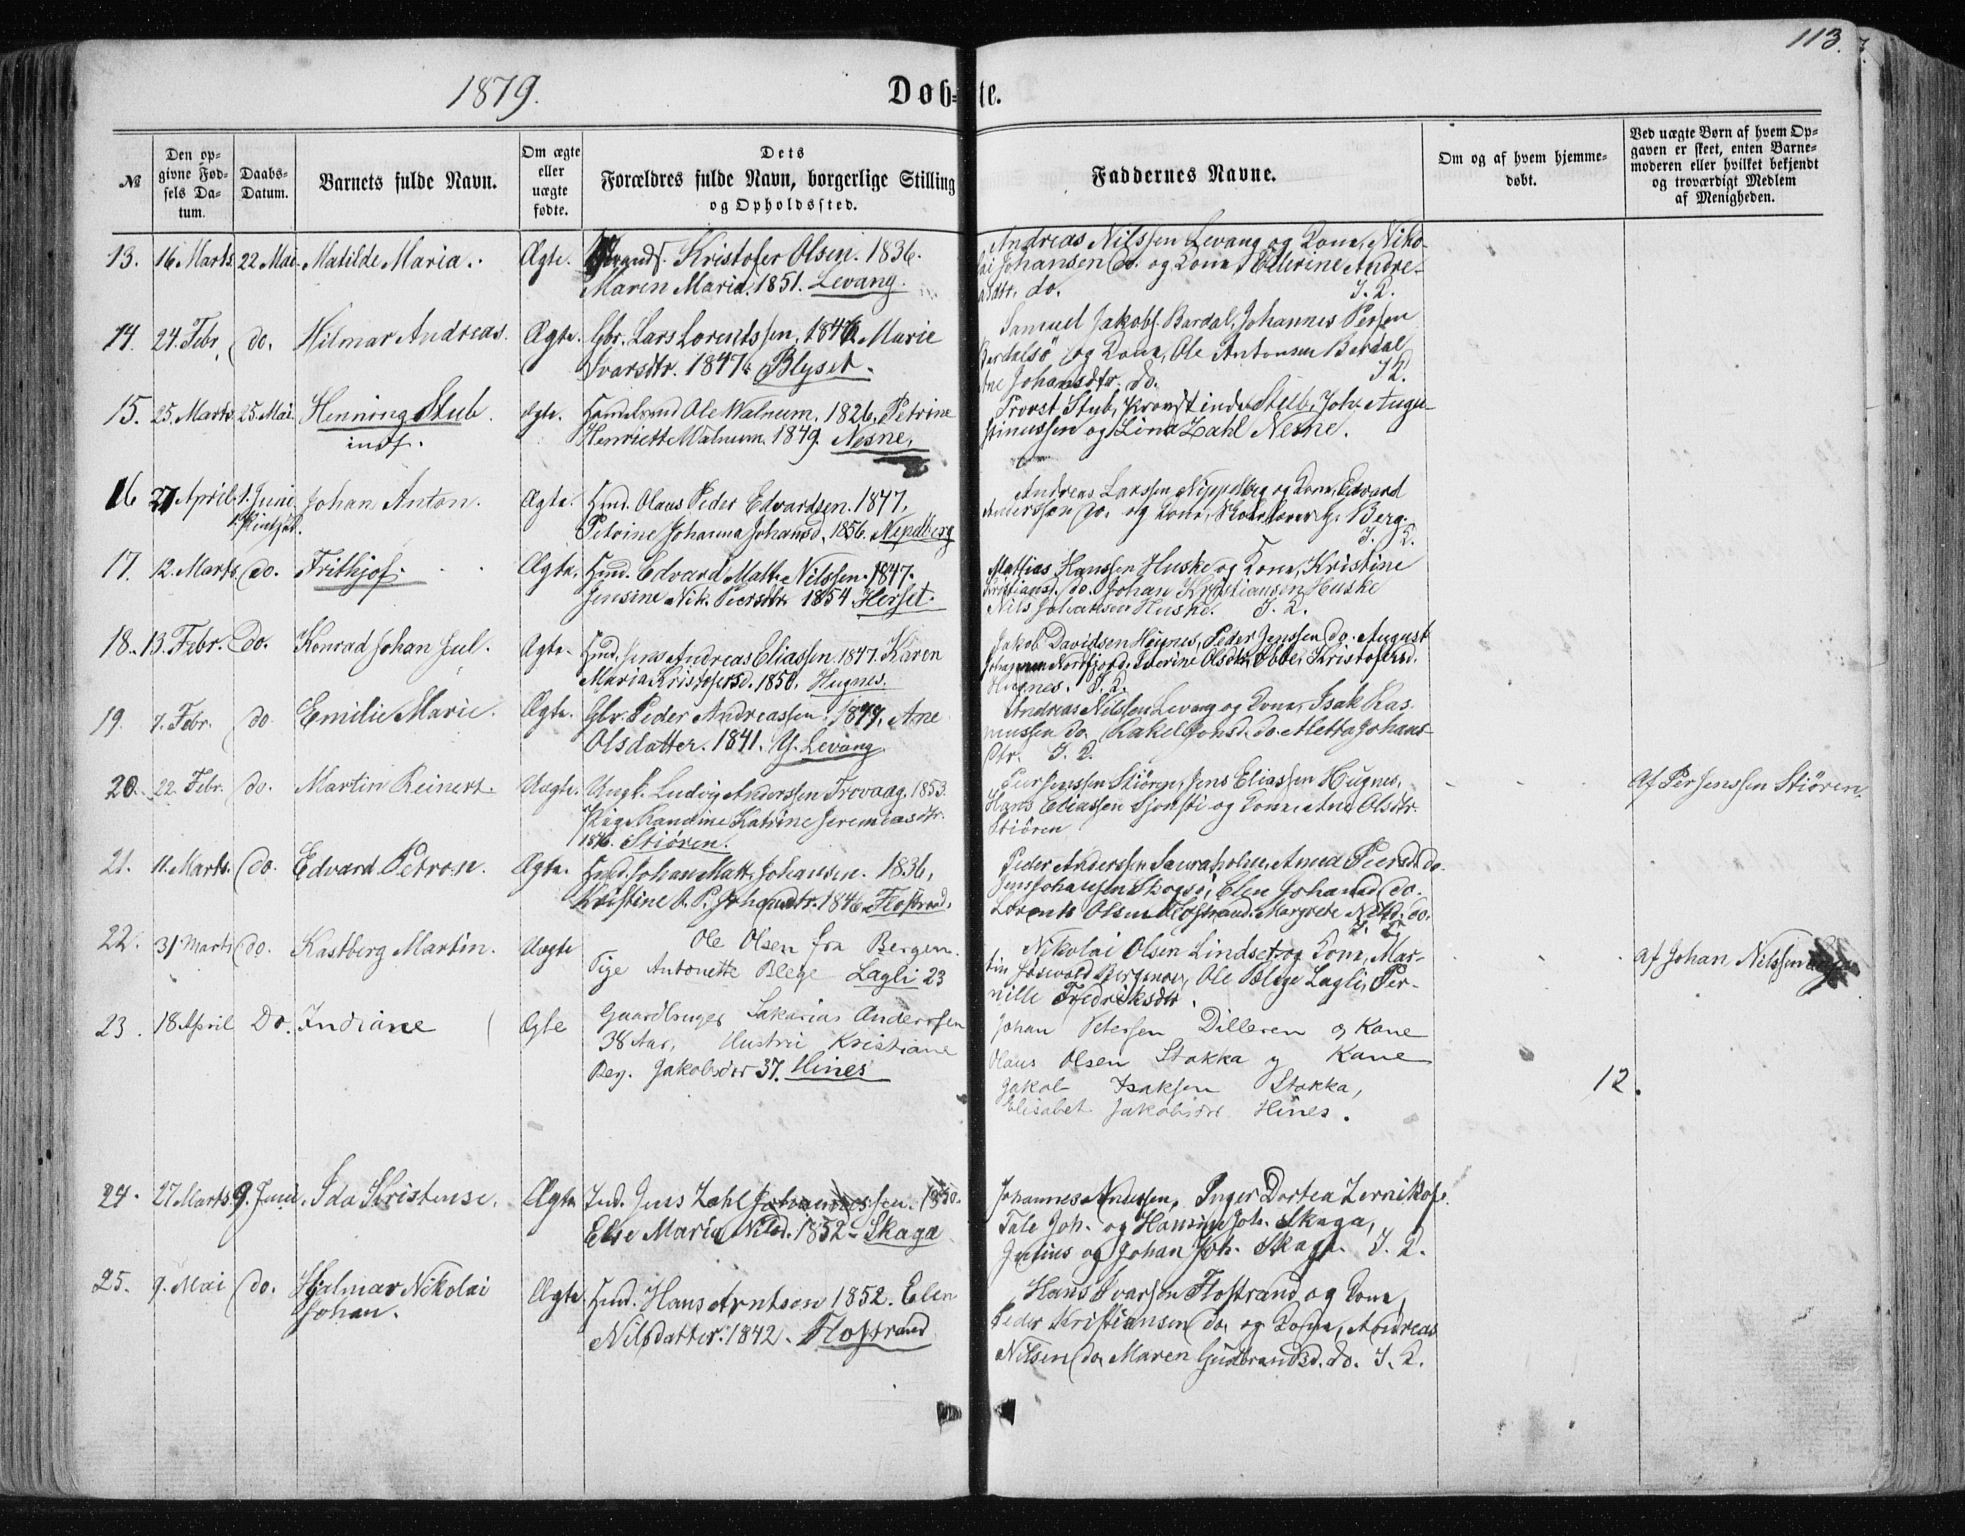 113.
1879.
Døb-te.
№
Den op-
givne Fød-
sels Da-
tum.
Daabs-
Datum.
Barnets fulde Navn.
Om ægte
eller
uægte
fødte.
Dets
Forældres fulde Navn, borgerlige Stilling
og Opholdssted.
Faddernes Navne.
Om og af hvem hjemme-
døbt.
Ved uægte Børn af hvem Op-
gaven er skeet, enten Barne-
moderen eller hvilket bekjendt
og troværdigt Medlem
af Menigheden.
13. 16 Marts. 22 Mai. Matilde Maria. Ægte. Kristofer Olsen. 1836.
Maren Maria. 1851. Levang.
Andreas Nilssen Levang og Kona, Niko-
lai Johansen do. og Kona, Andre-
asdtr. do. J. D.
14. 24. Febr. do. Hilmar Andreas. Ægte. Gbr. Lars Lorentssen. 1846 Marie
Ivarsdtr. 1847. Blyset.
Samuel Jakobs. Bardal, Johannes Persen
og Kona, Ole Antonsen Bardal
Ane Johansdtr. do. J. D.
15. 25. Marts. 25. Mai Henning Stub. Ægte. Ole Walnum. 1826, Petrine
indf.
Henriette Walnum. 1849. Nesne.
Provst Stub, Stub, Joh. Augu-
stinussen og Lina Zahl Nesne.
16 27 April. 1. Juni. Johan Anton. Ægte. Hmd. Olaus Peder Edvardsen. 1847.
1. Pintsed.
Petrine Johanna Johansd. 1856. Nepelberg
Andreas Larssen Nippelberg og Kona, Edvard
Anderssen do. og Kona, Berg.
J. D.
17. 12. Marts. do. Frithjof. Ægte. Hmd. Edvard Matt. Nilssen. 1847.
Jensine Nik. Peersdtr. 1854. Herset.
Mattias Hanssen Huske og Kona, Kristine
Kristians. do. Johan Kristiansen Huske
Nils Johansen Huske. J. D.
18. 13. Febr. do. Konrad Johan Juul. Ægte. Hmd. Jens Andreas Eliassen. 1847. Karen
Maria Kristofersd. 1850. Hugnes.
Jakob Davidsen Hugnes, Peder Jenssen do. August
Johansen Nordfjord, Severine Olsdtr, Ebbe Kristofersd.
Hugnes. J. D.
19. 7. Febr. do Emilie Marie. Ægte. Gbr. Peder Andreassen. Ane
Olsdatter. 1841. Y. Levang.
Andreas Nilssen Levang og Kona, Isak Ras-
mussen do. Rakel Jonsd. do. Aletta Johans-
dtr. J. D.
20. 22. Febr. do. Martin Reinert. Uægte. Ungk. Ludvig Anderssen Trovaag. 1853.
Pige Nandine Katrine Jeremiasdtr.
Stiøren.
Peer Jenssen Stiøren, Jens Eliassen Hugnes,
Hans Eliassen og Kona, Ane Olsdtr.
Stiøren
Af Per Jenssen Stiøren.
21. 11. Marts. do. Edvard Petron. Ægte. Hmd. Johan Matt. Johansen. 1836,
Kristine A. P. Johansdtr. 1846. Flostrand.
Peder Anderssen Sauraholm, Anna Peersd. do.
Jens Johansen Skogsø, Elen Johansd. do.
Lorents Olsen Flostrand. Margrete Nilsd. do.
J. D.
22. 31 Marts do. Kastberg Martin. Uægte Ole Olsen fra Bergen.
Pige Antonette Blege Lagli 23
Nikolai Olsen Lindset og Kone, Mar-
tin Ole Blege Lagli, Per-
nille Fredriksdtr.
af Johan Nilssen
23. 18 April Do. Indiane Ægte Gaardbruger Sakarias Anderssen
38 Aar, Hustru Kristiane
Ber. Jakobsdtr 37. Hines
Johan Petersen Dilleren og Kone
Olaus Olsen Stokka og Kone
Jakob Isaksen Stokka,
Elisabet Jakobsdtr Hines.
12.
24. 27 Marts 9. Juni. Ida Kristense. Ægte Ind. Jens Zahl Johannessen. 1850.
Else Maria Nilsd. 1852. Skaga
Johannes Anussen, Inger Dortea Zernikof.
Tale Joh. og Hansine Joh. Skaga,
Julius og Johan Joh. Skaga. J. D.
25. 9. Mai do. Hjalmar Nikolai Ægte. Hmd. Hans Arntsen 1852. Elen
Johan.
Nilsdatter. 1842. Flostrand
Hans Ivarsen Flostrand og Kona,
Peder Kristiansen do. og Kona, Andreas
Nilsen do. Maren Gudbrandsd. do. J. D.